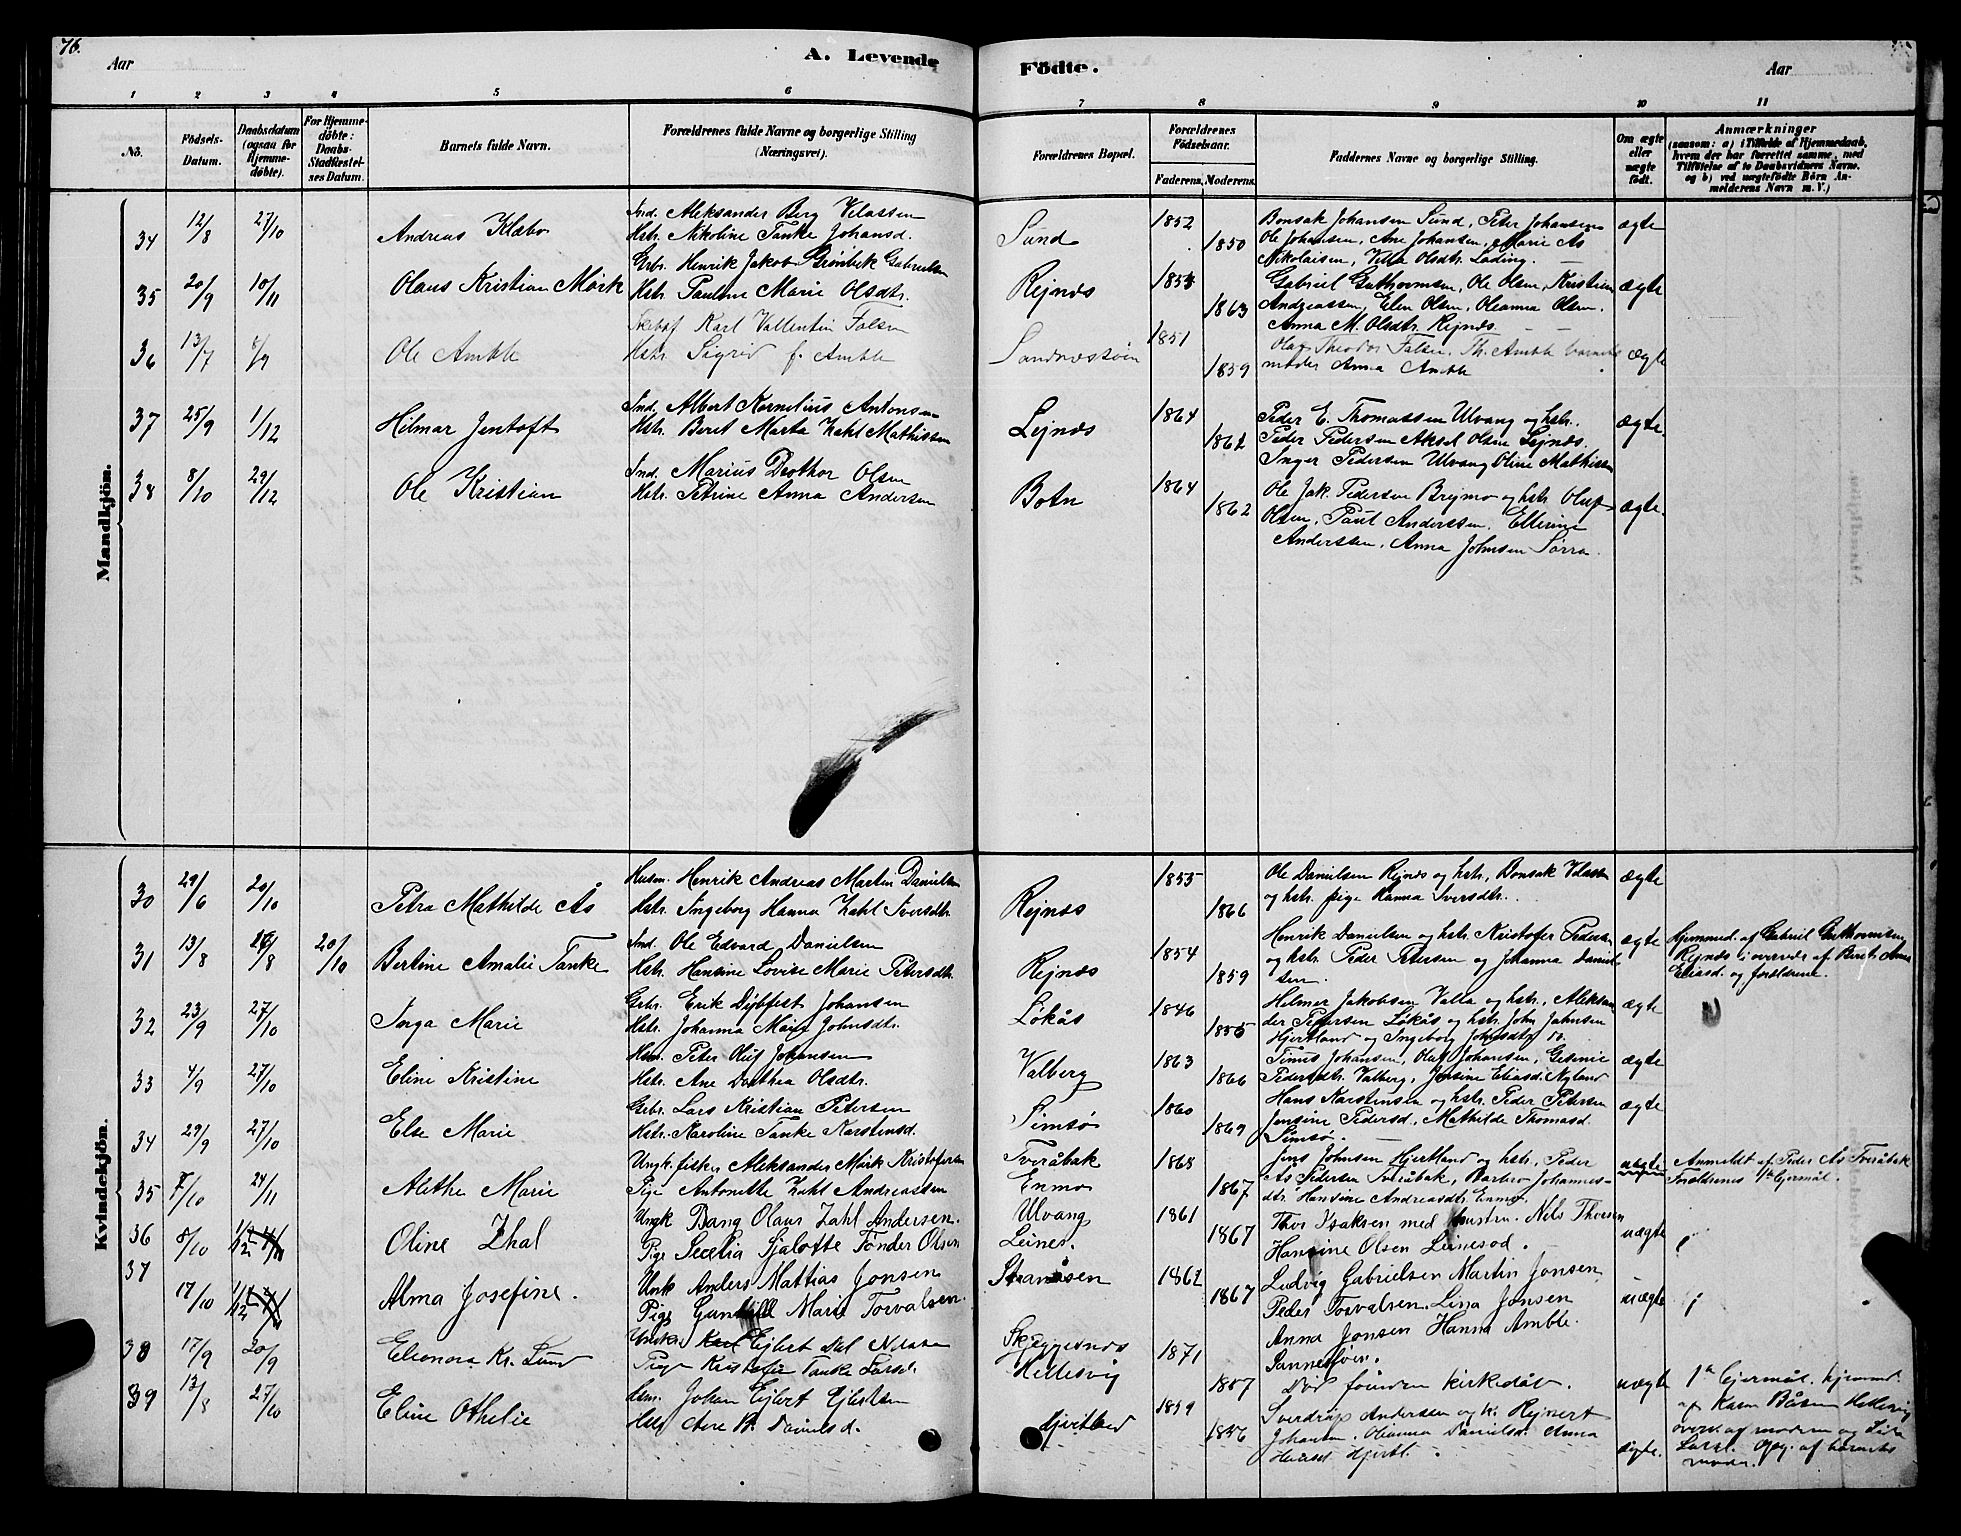 76.
Aar
A. Levende
Födte.
Aar
1 2 3 4 5 6 7 8 9 10 11
No.
Födsels-Datum.
Daabsdatum (ogsaa for Hjemme-döbte).
For Hjemme-döbte: Daabs-Stadfæstel-ses Datum.
Barnets fulde Navn.
Forældrenes fulde Navne og borgerlige Stilling (Næringsvei).
Forældrenes Bopæl.
Forældrenes Födselsaar.
Faderens. Moderens.
Faddernes Navne og borgerlige Stilling.
Om ægte eller uægte født.
Anmærkninger
(saasom: a) i Tilfælde af Hjemmedaab, hvem der har forrettet samme, med Tilföielse af to Daabsvidners Navne. og b) ved uægtefödte Börn An-melderens Navn m. V.)
Mandkjön.
34 12/8 27/10 Andreas Klæbo
Ind. Aleksander Berg
Hstr. Nikoline Tanke Johansd.
Sund 1852 1850
Bonsak Johansen Sund, Peter Johansen
Ole Johansen, Ane Johansen, Marie Ås
Nikolaisen, Olsdtr. Lading.
ægte
35 20/9 10/11 Olaus Kristian Mörk
Grbr. Henrik Jakob Grönbek Gabrielsen
Hstr. Pauline Marie Olsdtr.
Rejnes 1854 1863
Gabriel Guthormsen, Ole Olsen, Kristian
Andreassen, Elen Olsen, Oleanna Olsen.
Anna M. Olsdtr. Rejnes
ægte
36 13/7 8/9 Ole Amble
Karl Vallentin Falsen
Hstr. Sigrid f. Amble
1851 1859
Theodor Falsen. Th. Amble barnets
moder Anna Amble
ægte
37 25/9 1/12 Hilmar Jentoft
Ind. Albert Kornelius Antonsen
Hstr. Beret Marta Zahl Mathissen
Lejnes 1864 1862
Peder E. Thomassen Ulvang og hstr.
Peder Pedersen Aksel Olsen Lejnes.
Inger Pedersen Ulvang Oline Mathissen
ægte.
38 8/10 29/12 Ole Kristian
Ind. Marius Olsen
Hstr. Petrine Anna Andersen
Botn 1864 1862
Ole Jak. Pedersen Brejmo og hstr. Oluf
Olsen. Paul Anderssen. Ellerine
Anderssen, Anna Johnsen Sörra.
ægte.
Kvindekjön.
30 29/6 20/10 Petra Mathilde Ås
Husm. Henrik Andreas Martin Danielsen
Hstr. Ingeborg Hanna Zahl Iversdtr.
Rejnes 1855 1866
Ole Danielsen Rejnes og hstr, Bonsak
og hstr. pige Hanna Iversdtr.
ægte
31 13/8 /8 20/10 Bertine Amalie Tanke
Ind. Ole Edvard Danielsen
Hstr. Hansine Lovise Marie Petersdtr.
Rejnes 1854 1859
Henrik Danielsen og hstr. Kristofer Peders-
og hstr. Peder Petersen og Johanna Daniel-
sen.
ægte
Hjemmed. af Gabriel Guthormsen
Rejnes i overvær af Beret Anna
Eliasd. og forældrene.
32 23/9 27/10 Inga Marie
Grbr. Erik Dybfest Johansen
Hstr. Johanna Marie Johnsdtr.
Lökås 1846 1855
Helmer Jakobsen Valla og hstr. Aleksan-
der Petersen Lökås og hstr. John Johnsen
Hjertland og Ingeborg Johnsdtr.
ægte
33 4/9 27/10 Eline Kristine
Hsm. Peter Oluf Johansen
Hstr. Ane Dorthea Olsdtr.
Valberg 1863 1866
Tinus Johansen, Oluf Johansen, Gesine
Pedersdtr. Valberg, Jensine Eliasd. Nyland
ægte
34 29/9 27/10 Else Marie
Grbr. Lars Kristian Petersen
Hstr. Karoline Tanke Karstensd.
Simsö 1860 1869
Hans Karstensen og hstr. Peder Petersen
Jensine Pedersd., Mathilde Thomasd.
Simsö.
ægte
35 7/10 24/11 Alethe Marie
Ungk. fisker Aleksander Mörk Kristofersen
Pige Antonette Zahl Andreassen
Tveråbak
Enmo 1867
Jens Johnsen Hjertland og hstr. Peder
Ås Pedersen Tveråbak, Barbro Johannes-
dtr. Hansine Andreasdtr. Enmo.
uægte
Anmeldt af Peder Ås Tveråbak
Forældrenes 1ste lejermål.
36 8/10 1/12 Oline Zhal
Ungk Bang Olaus Zahl Andersen.
Pige Secelia Sjalotte Tönder Olsen
Ulvang
Leines. 1861 1867
Thor Isaksen med hustru. Nils Thorsen
Hansine Olsen Leinesod.
uægte
37 17/10 Alma Josefine.
Unk Anders Mattias Jonsen
Pige Gunhild Marie Torvalsen.
Stranåsen 1862 1867
Ludvig Gabrielsen Martin Jonsen,
Peder Torvalsen. Lina Jonsen
Anna Jonsen Hanna Amble.
uægte
38 17/9 20/9 Eleonora Kr. Lund
Ejlert Dal
Pige Tanke Larsd.
Hellesvig 1871
Död förinden kirkedåb.
uægte
1ste lejermål. hjemmed.
af Karen Båsen Hellesvig
overv. af moderen og
Larsd. Opg. af barnets
moder.
39 13/8 27/10 Eline Othelie
Hsm. Johan Ejlert Ejlertsen
Hstr. Ane B. Danielsd.
1859 1856
Sverdrup Andersen og h. Rejnert
Johansen. Oleanna Danielsd. Anna
ægte.